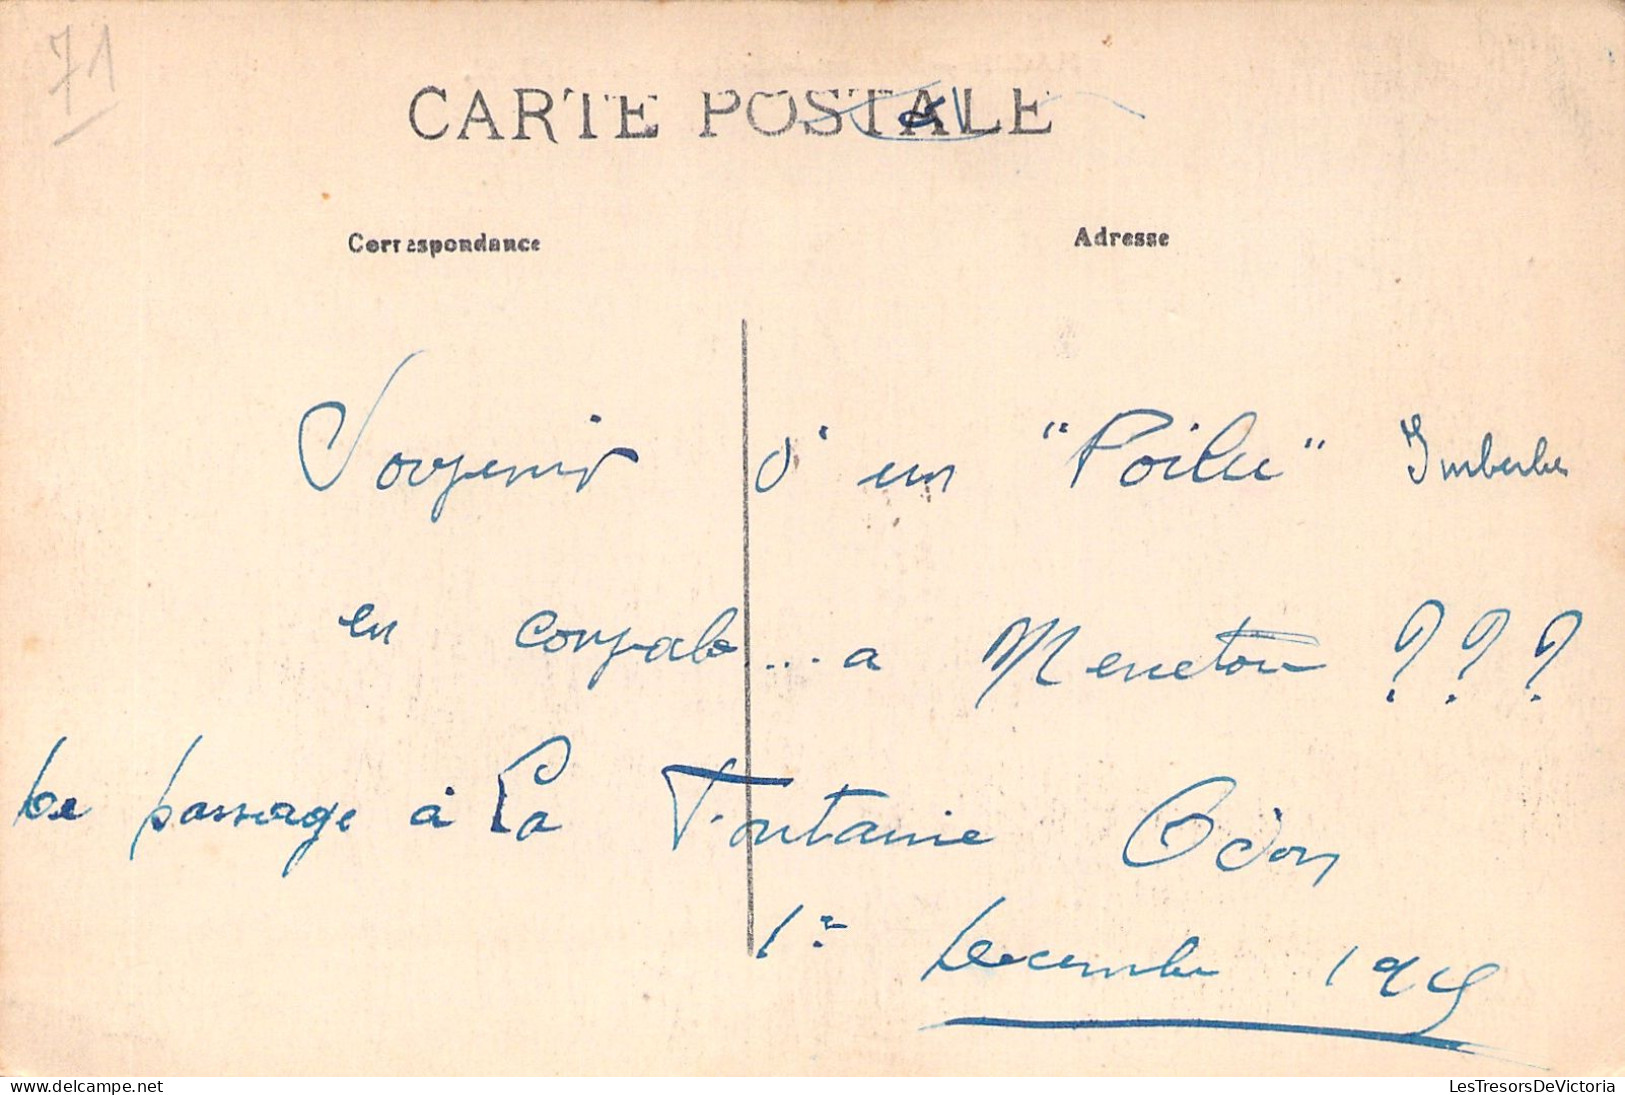 71
CARTE POSTALE
Correspondance
Adresse
Souvenir d'un "Poilu" Imberbe
en .... a Menetou ? ? ?
De passage à La Fontaine Odon
1er Decembre 1915
LesTresorsDeVictoria